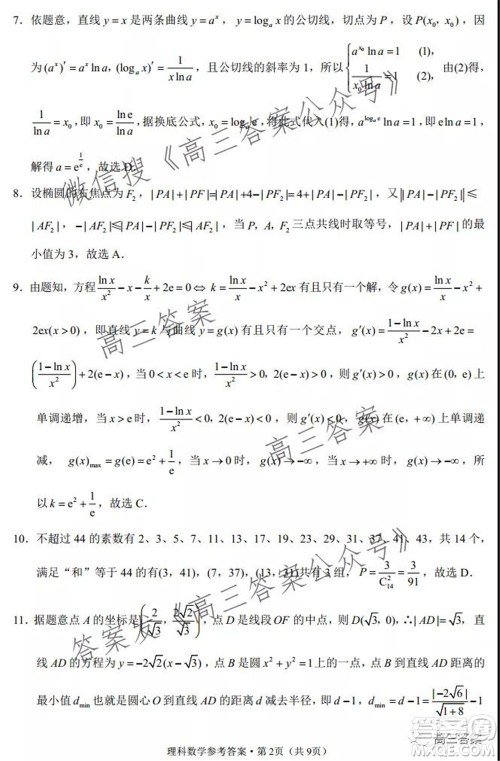 7．依题意，直线 y = x 是两条曲线 y = a^x ， y = log_a x 的公切线，切点为 P ，设 P(x₀, x₀) ，因
为 (a^x)′ = a^x ln a, (log_a x)′ = 1/(x ln a) ，且公切线的斜率为 1，所以 { a^{x₀} ln a = 1 (1)， 1/(x₀ ln a) = 1 (2)， 由(2)得，
1/ln a = x₀ ，即 ln e/ln a = x₀ ，据换底公式， x₀ = log_a e ，将此式代入(1)得， a^{log_a e} ln a = 1 ，即 e ln a = 1，
解得 a = e^{1/e} ，故选 D．
8．设椭圆的右焦点为 F₂ ， | PA | + | PF | = | PA | + 4 − | PF₂ | = 4 + | PA | − | PF₂ | ，又 || PA | − | PF₂ || ≤
| AF₂ | ， −| AF₂ | ≤ | PA | − | PF₂ | ≤ | AF₂ | ，当 P，A，F₂ 三点共线时取等号， | PA | + | PF | 的最
小值为 3，故选 A．
9．由题知，方程 ln x/x − x − k/x + 2e = 0 ⇔ k = ln x/x − x² + 2ex 有且只有一个解，令 g(x) = ln x/x − x² +
2ex(x > 0) ，即直线 y = k 与曲线 y = g(x) 有且只有一个交点， g′(x) = (1 − ln x)/x² − 2x + 2e =
((1 − ln x)/x²) + 2(e − x) ，当 0 < x < e 时， (1 − ln x)/x² > 0, 2(e − x) > 0 ，则 g′(x) > 0 ， g(x) 在 (0, e) 上
单调递增，当 x > e 时， (1 − ln x)/x² < 0, 2(e − x) < 0 ，则 g′(x) < 0 ， g(x) 在 (e, +∞) 上单调递
减， g(x)max = g(e) = e² + 1/e ，当 x → 0 时， g(x) → −∞ ，当 x → +∞ 时， g(x) → −∞ ，所
以 k = e² + 1/e ，故选 C．
10．不超过 44 的素数有 2、3、5、7、11、13、17、19、23、29、31、37、41、43，共 14 个，
满足“和”等于 44 的有(3, 41)，(7, 37)，(13, 31)共有 3 组， P = 3/C₁₄² = 3/91 ，故选 D．
11．据题意点 A 的坐标是 (2/√3, 2√2/√3) ，点 D 是线段 OF 的中点，则 D(√3, 0), ∴| AD | = √3 ，直
线 AD 的方程为 y = −2√2(x − √3) ，点 B 是圆 x² + y² = 1 上的一点，点 B 到直线 AD 距离的
最小值 dmin 也就是圆心 O 到直线 AD 的距离 d 减去半径，即 d − 1， dmin = |−2√6|/√(1 + 8) − 1 =
理科数学参考答案·第 2页（共 9页）
微信搜《高三答案公众号》
高三答案
高三答案
答案发《高三答案公众号》
高三答案